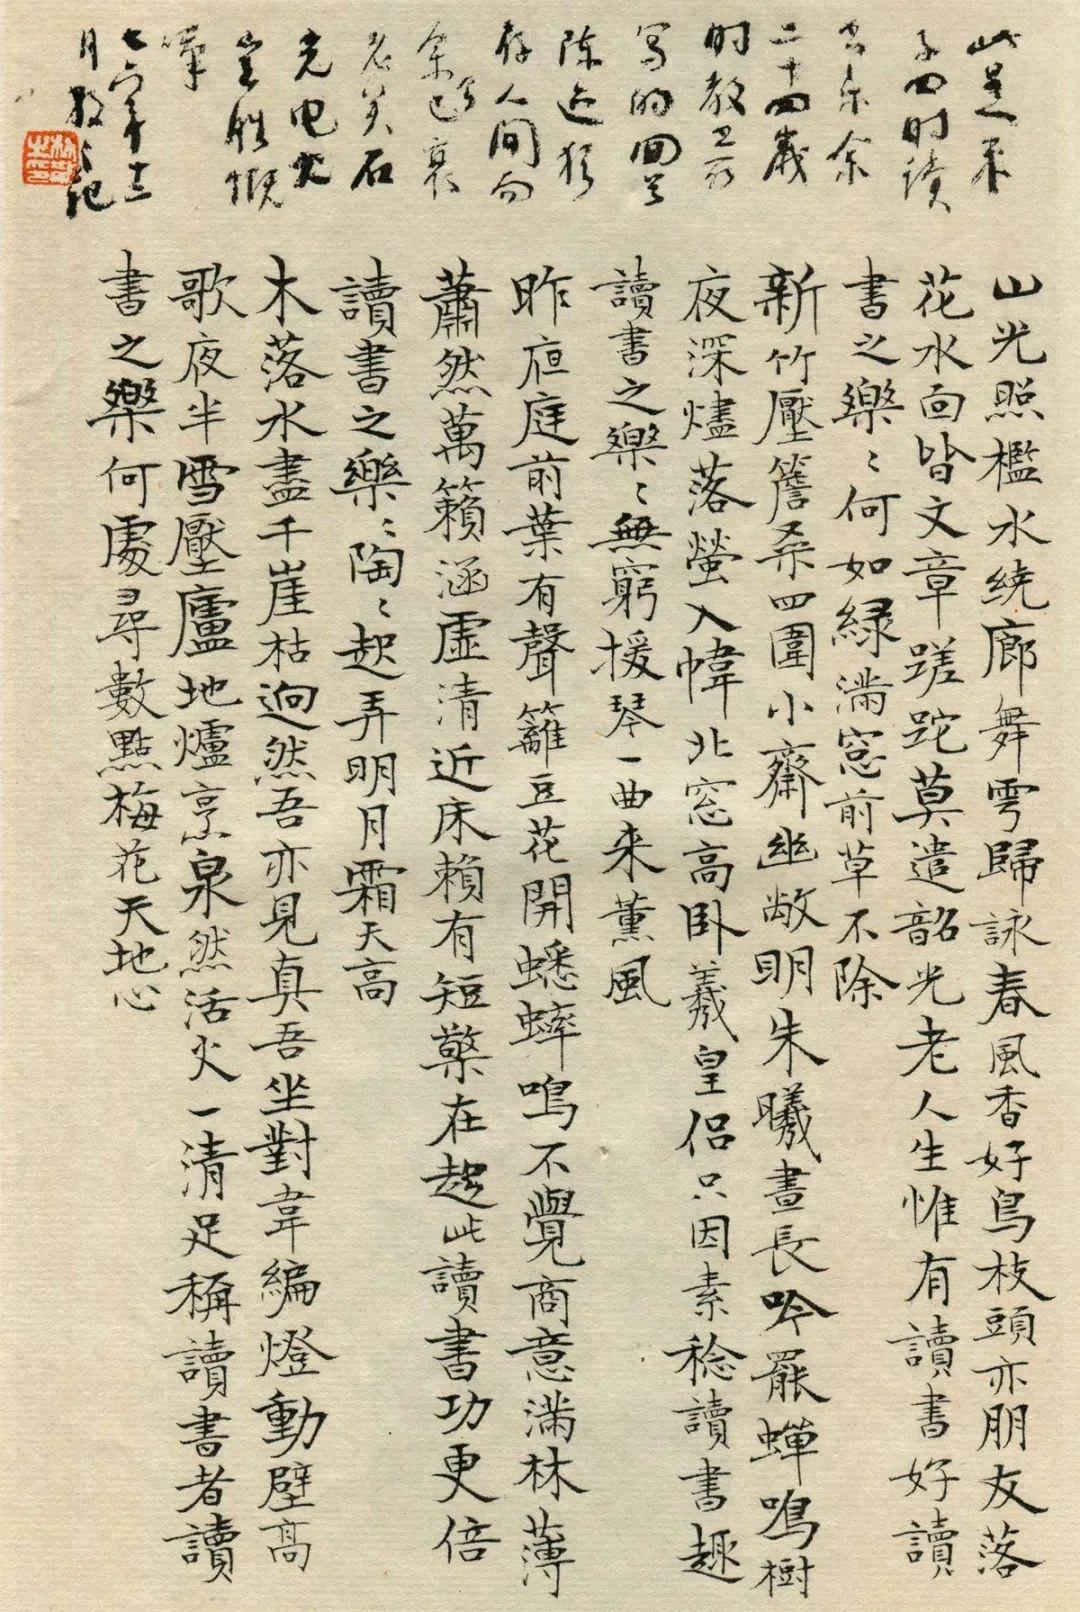 此是朱
子四时读
书乐余
二十四歲
时教
写的回首
陈迹犹
存人间而
余已衰
老矣石
光电火
豈勝慨
嘆
七六年十二
月散之记
山光照檻水繞廊舞雩歸詠春風香好鳥枝頭亦朋友落
花水面皆文章蹉跎莫遣韶光老人生惟有讀書好讀
書之樂〻何如綠滿窓前草不除
新竹壓簷桑四圍小齋幽敞明朱曦晝長吟罷蟬鳴樹
夜深燼落螢入幃北窓高臥羲皇侶只因素稔讀書趣
讀書之樂〻無窮援琴一曲来薰風
昨夜庭前葉有聲籬豆花開蟋蟀鳴不覺商意滿林薄
蕭然萬籟涵虛清近床賴有短檠在趁此讀書功更倍
讀書之樂〻陶〻起弄明月霜天高
木落水盡千崖枯迥然吾亦見真吾坐對韋編燈動壁高
歌夜半雪壓廬地爐烹泉然活火一清足稱讀書者讀
書之樂何處尋數點梅花天地心